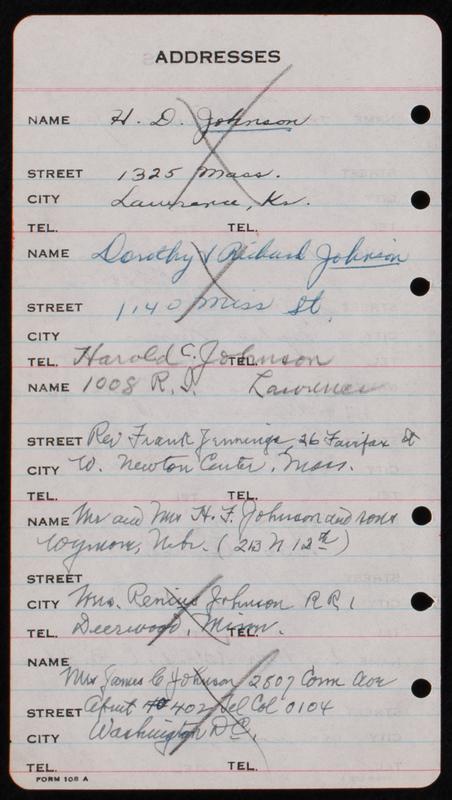 ADDRESSES
NAME H. D. Johnson
STREET 1325 Mass.
CITY Lawrence, Ks.
TEL. TEL.
NAME Dorothy & Richard Johnson
STREET 1140 Miss St.
CITY
TEL. Harold C. Johnson TEL.
NAME 1008 R. I. Lawrence
STREET Rev Frank Jennings, 26 Fairfax St
CITY W. Newton Center, Mass.
TEL. TEL.
NAME Mr and Mrs H. F. Johnson and sons
Wymore, Nebr. (213 N 12th)
STREET
CITY Wm. Johnson R R 1
TEL. Deerwood, Minn. TEL.
NAME
Mrs James C Johnson 2807 Conn Ave
STREET Apmt 402 Tel Col 0104
CITY Washington D.C.
TEL. TEL.
FORM 108 A